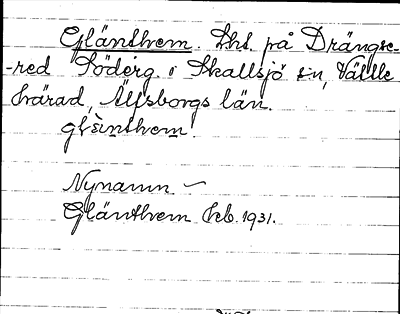 Glänthem. Lht. på Drängse-
-red Söderg. i Skallsjö sn, Vättle
härad, Älfsborgs län.
gläinthem.
Nynamn
Glänthem Jeb. 1931.